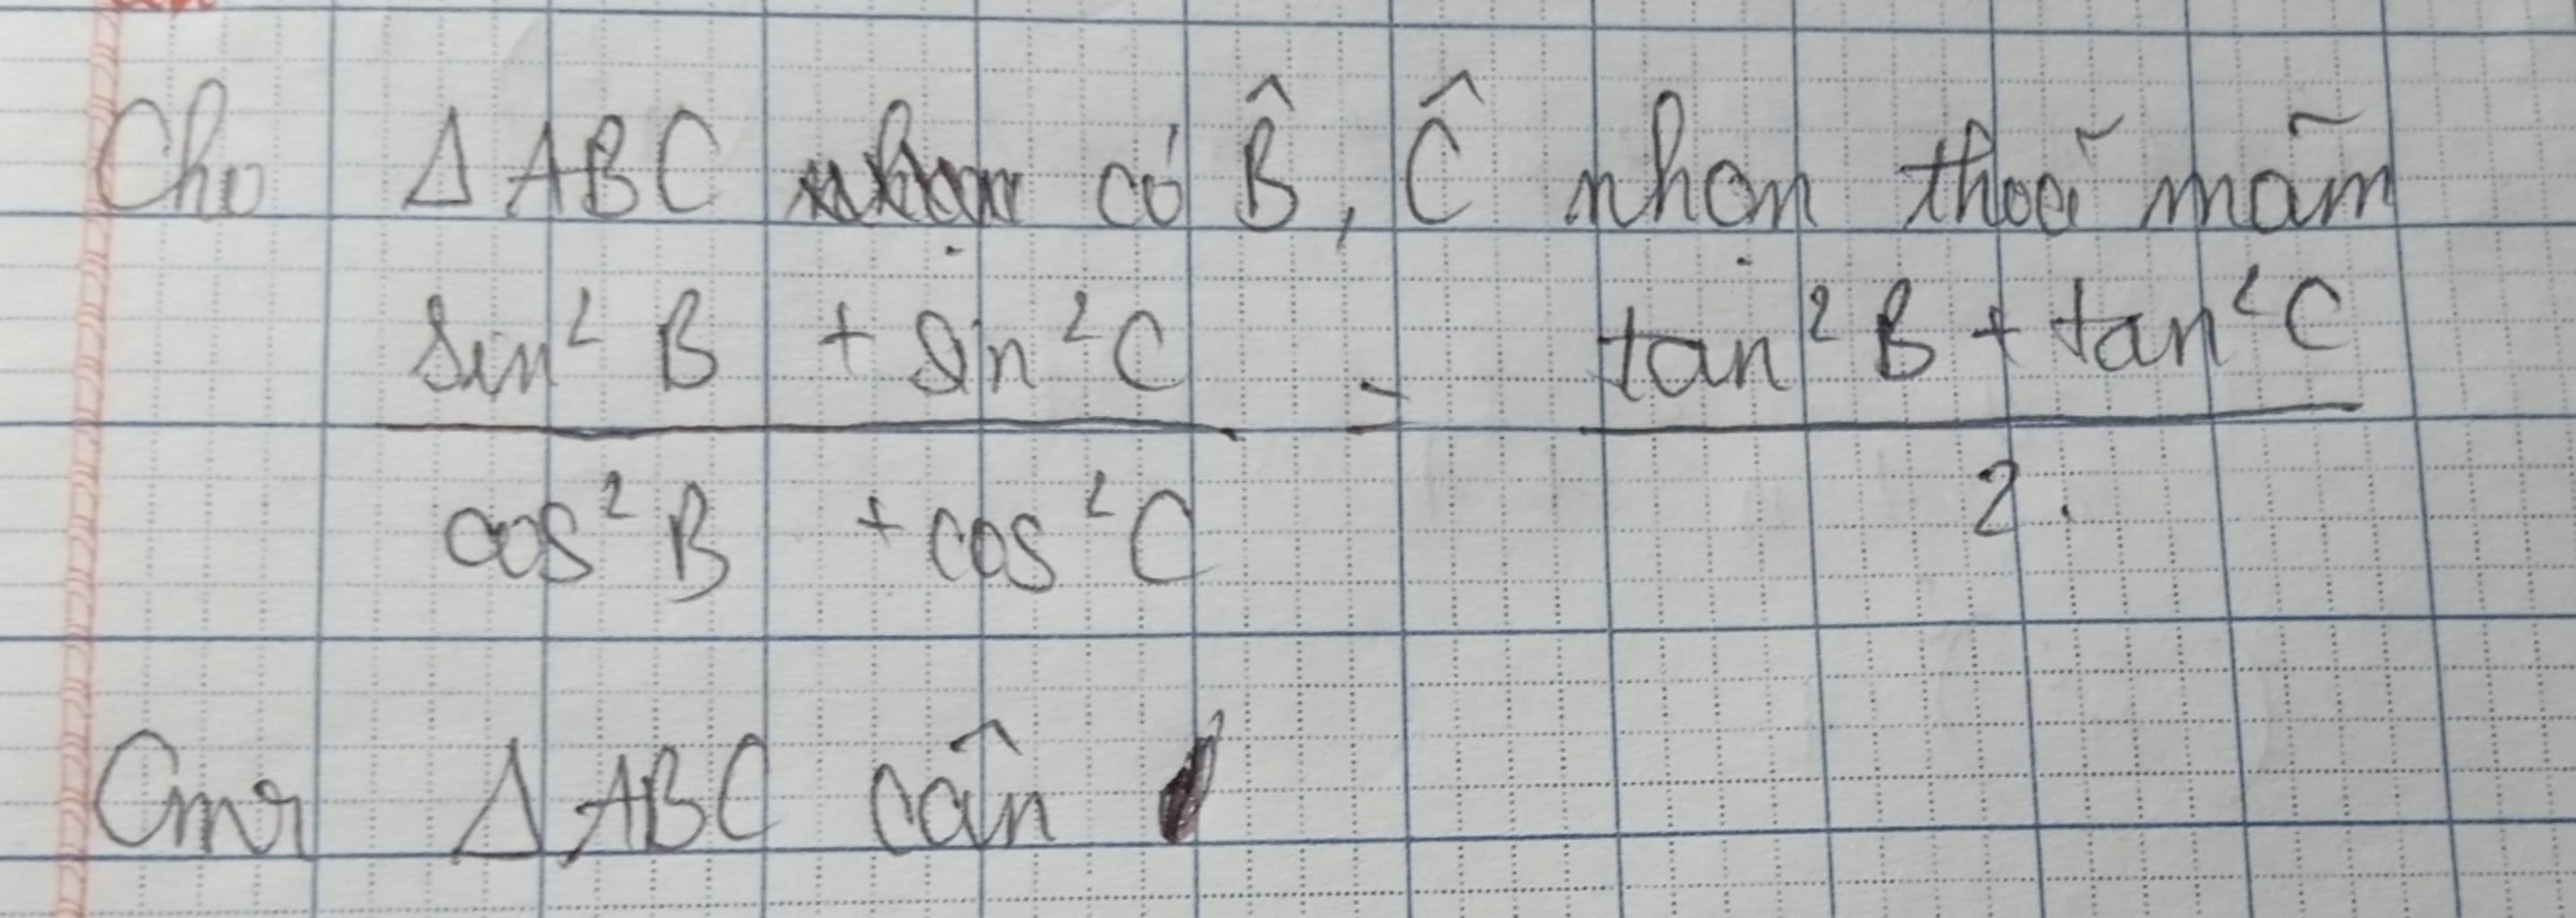 Cho ΔABC có B̂, Ĉ nhọn thoả mãn
(sin²B + sin²C) / (cos²B + cos²C) = (tan²B + tan²C) / 2.
Cmr ΔABC cân